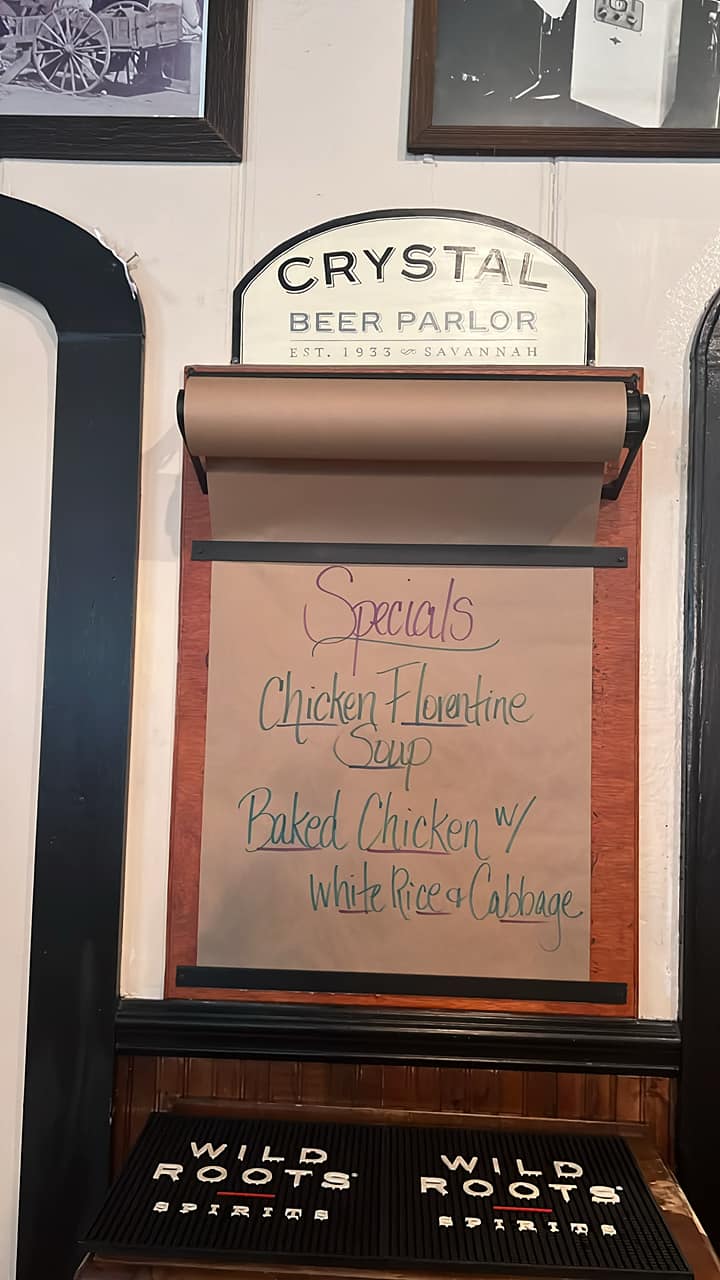 CRYSTAL
BEER PARLOR
EST. 1933 SAVANNAH
Specials
Chicken Florentine
Soup
Baked Chicken w/
White Rice & Cabbage
WILD
ROOTS
SPIRITS
WILD
ROOTS
SPIRITS